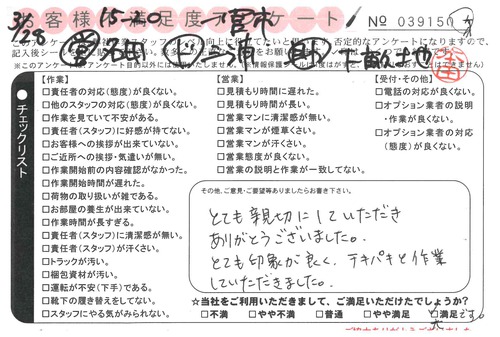 お客様満足度アンケート
№ 039150
【作業】
□責任者の対応(態度)が良くない。
□他のスタッフの対応(態度)が良くない。
□作業を見ていて不安がある。
□責任者(スタッフ)に好感が持てない。
□お客様への挨拶が出来ていない。
□ご近所への挨拶・気遣いが無い。
□作業開始前の内容確認がなかった。
□作業開始時間が遅れた。
□荷物の取り扱いが雑である。
□お部屋の養生が出来ていない。
□作業時間が長すぎる。
□責任者(スタッフ)に清潔感が無い。
□責任者(スタッフ)が汗くさい。
□トラックが汚い。
□梱包資材が汚い。
□運転が不安(下手)である。
□靴下の履き替えをしてない。
□スタッフにやる気がみられない。
【営業】
□見積もり時間に遅れた。
□見積もり時間が長い。
□営業マンに清潔感が無い。
□営業マンが煙草くさい。
□営業マンが汗くさい。
□営業態度が良くない。
□営業の説明と作業が一致してない。
【受付・その他】
□電話の対応が良くない。
□オプション業者の説明
・作業が良くない。
□オプション業者の対応
(態度)が良くない。
チェックリスト
その他、ご意見・ご要望等ありましたらお書き下さい。
とても親切にしていただき
ありがとうございました。
とても印象が良く、テキパキと作業
していただきました。
☆当社をご利用いただきまして、ご満足いただけたでしょうか?
□不満 □やや不満 □普通 □やや満足 □満足です。
大